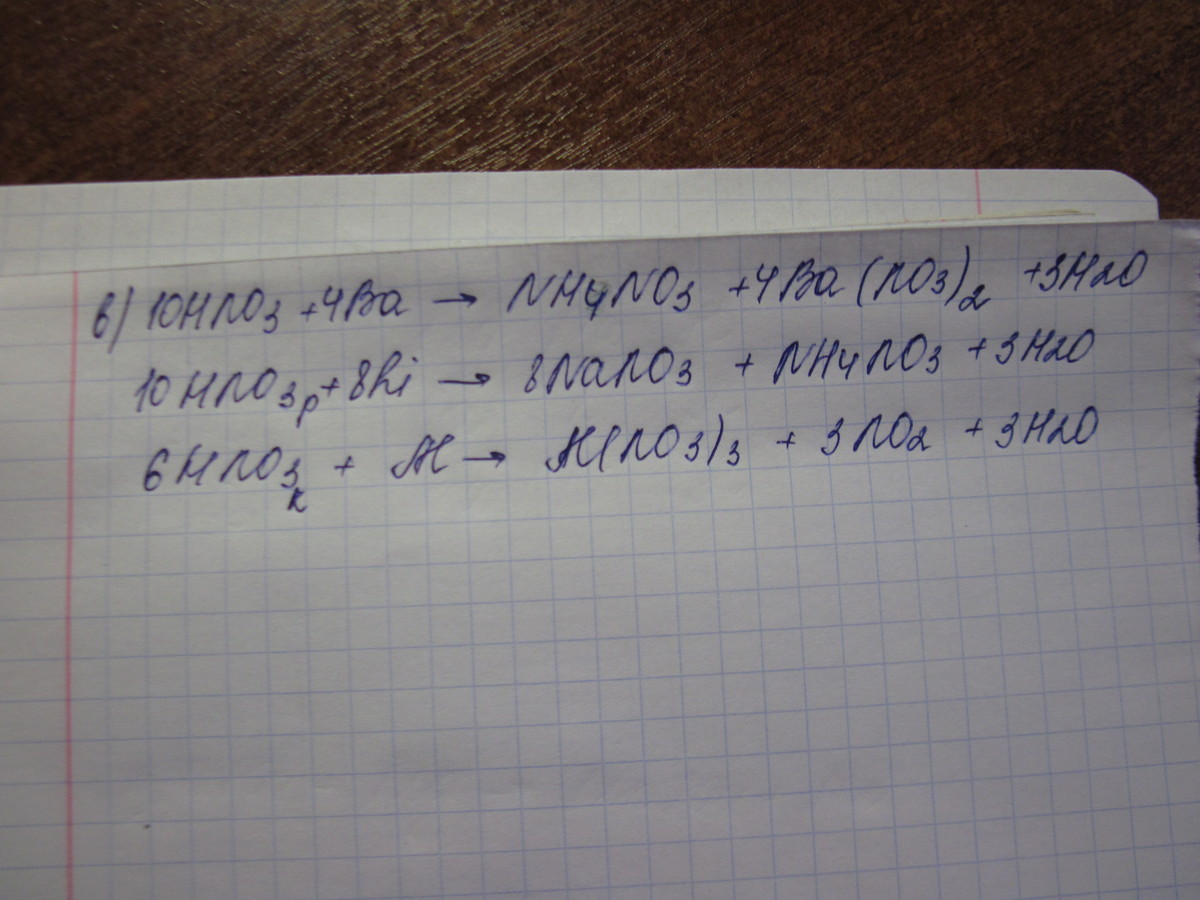 в) 10HNO3 + 4Ba → NH4NO3 + 4Ba(NO3)2 + 3H2O
10HNO3р + 8Li → 8NaNO3 + NH4NO3 + 3H2O
6HNO3к + Al → Al(NO3)3 + 3NO2 + 3H2O